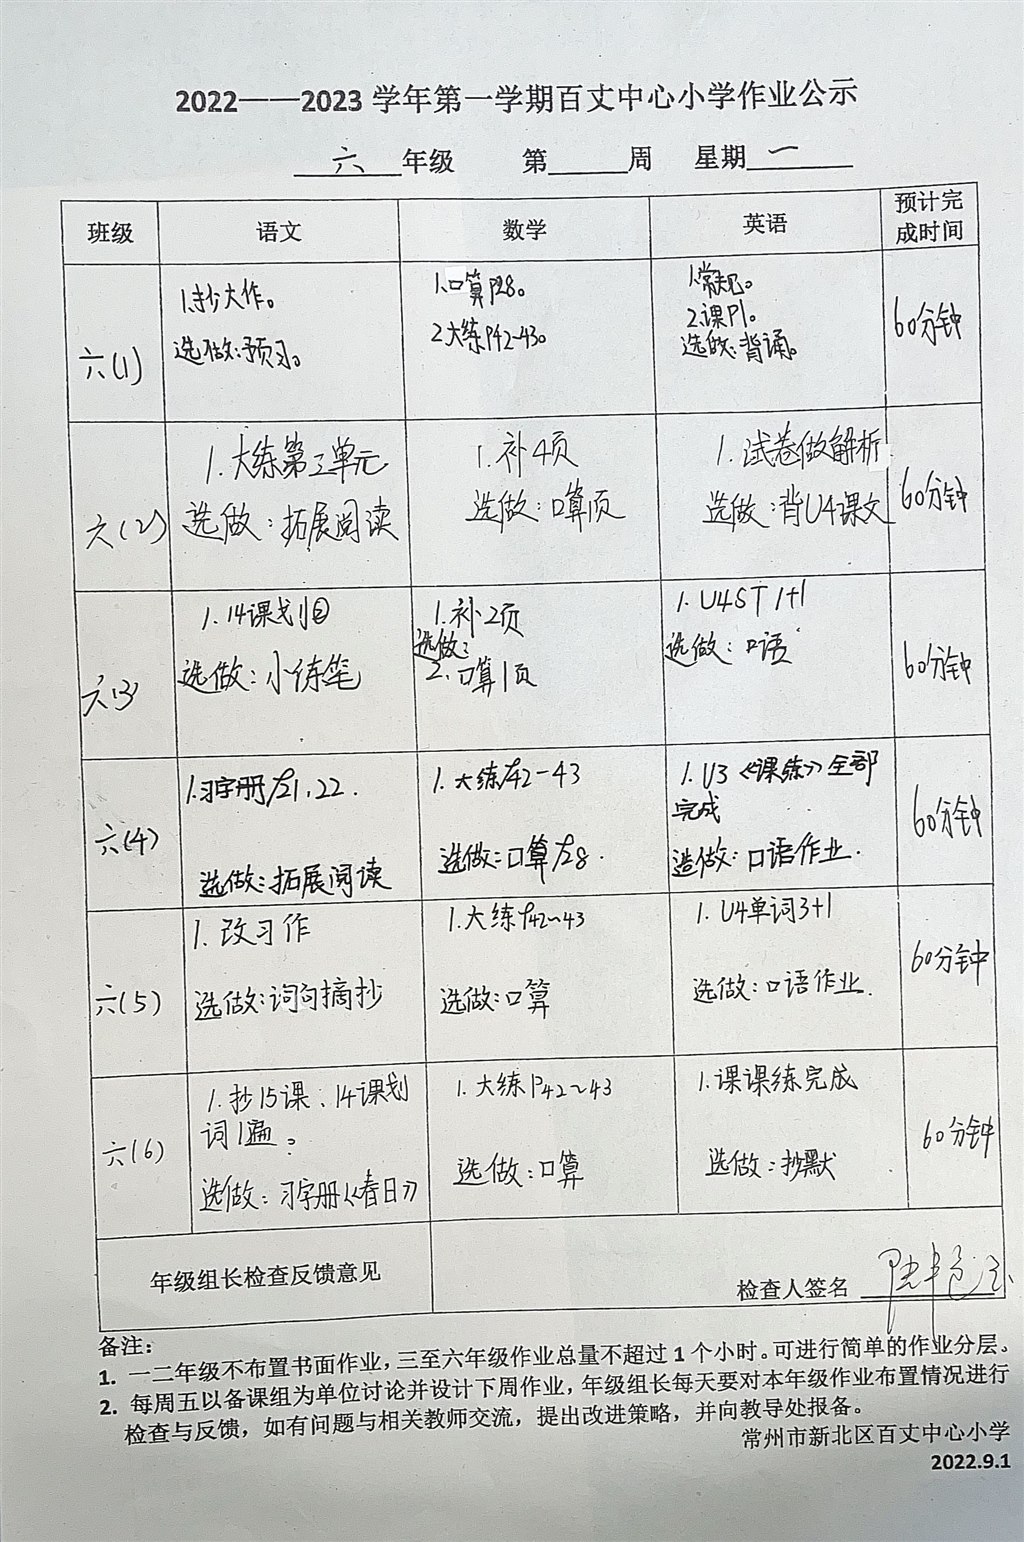 2022——2023 学年第一学期百丈中心小学作业公示
六 年级 第 周 星期 一
班级 语文 数学 英语 预计完
成时间
六(1)
1.抄大作。
选做:预习。
1.口算P28。
2.大练P42~43。
2.课P1。
选做:背诵。
60分钟
六(2)
1.大练第三单元
选做:拓展阅读
1.补4页
选做:口算1页
1.试卷做解析
选做:背U4课文
60分钟
六(3)
1.14课划词
选做:小练笔
1.补2页
选做:
2.口算1页
1.U4ST 1+1
选做:口语
60分钟
六(4)
1.习字册P21、22.
选做:拓展阅读
1.大练P42-43
选做:口算P28.
1.U3《课练》全部
完成
选做:口语作业.
60分钟
六(5)
1.改习作
选做:词句摘抄
1.大练P42~43
选做:口算
1.U4单词3+1
选做:口语作业.
60分钟
六(6)
1.抄15课、14课划
词1遍。
选做:习字册《春日》
1.大练P42~43
选做:口算
1.课课练完成
选做:抄默
60分钟
年级组长检查反馈意见
检查人签名
备注:
1. 一二年级不布置书面作业,三至六年级作业总量不超过 1 个小时。可进行简单的作业分层。
2. 每周五以备课组为单位讨论并设计下周作业,年级组长每天要对本年级作业布置情况进行
检查与反馈,如有问题与相关教师交流,提出改进策略,并向教导处报备。
常州市新北区百丈中心小学
2022.9.1